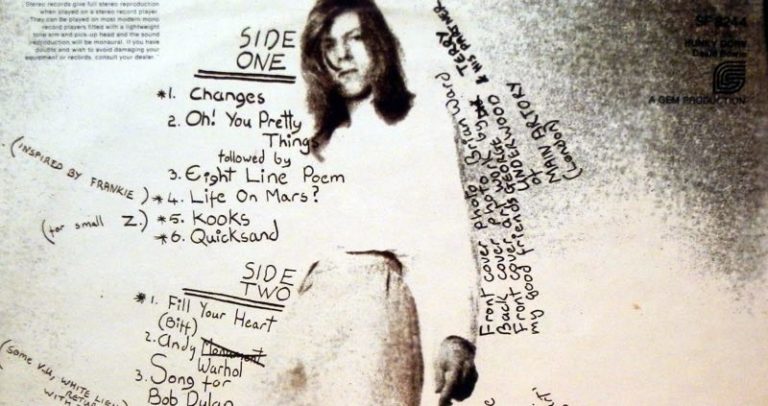 Stereo records give full stereo reproduction
when played on a stereo record player.
They can be played on most modern mono
record players fitted with a lightweight
tone arm and pick-up head and the sound
reproduction will be monaural. If you have
doubts and wish to avoid damaging your
equipment or records, consult your dealer.
SIDE
ONE
*1. Changes
2. Oh! You Pretty
Things
followed by
3. Eight Line Poem
(INSPIRED BY FRANKIE) *4. Life On Mars?
(for small Z.) *5. Kooks
*6. Quicksand
SIDE
TWO
*1. Fill Your Heart
(Biff)
2. Andy
Warhol
3. Song for
Bob Dylan
(some V.U. WHITE
RETU
WITH
Front cover photo Brian Ward
Back cover photo by
TERRY
& HIS PARTNER
Front cover art work
my good friends GEORGE
UNDERWOOD
of
MAIN ARTORY
(London)
SF 8244
HUNKY DORY
David Bowie
A GEM PRODUCTION